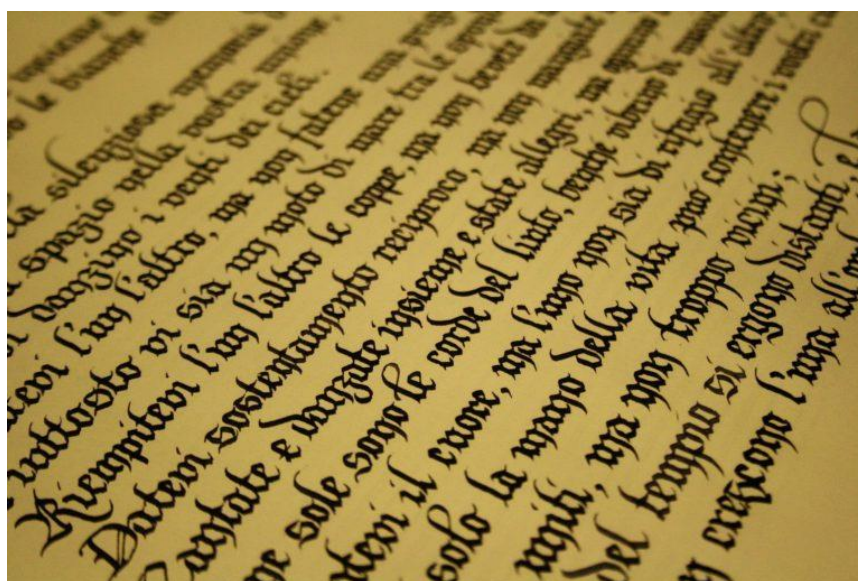 insieme
le bianche
lla silenziosa memoria
spazio nella vostra unione,
si danzino i venti dei cieli.
atevi l'un l'altro, ma non fatene una prig
iuttosto vi sia un moto di mare tra le spon
Riempitevi l'un l'altro le coppe, ma non bevete da
Datevi sostentamento reciproco, ma non mangiate
antate e danzate insieme e state allegri, ma ognuno
me sole sono le corde del liuto, benche vibrino di
atevi il cuore, ma l'uno non sia di rifugio all'altro,
solo la mano della vita può contenere i vostri cu
uniti, ma non troppo vicini;
del tempio si ergono distanti, e la
n crescono l'una all'om